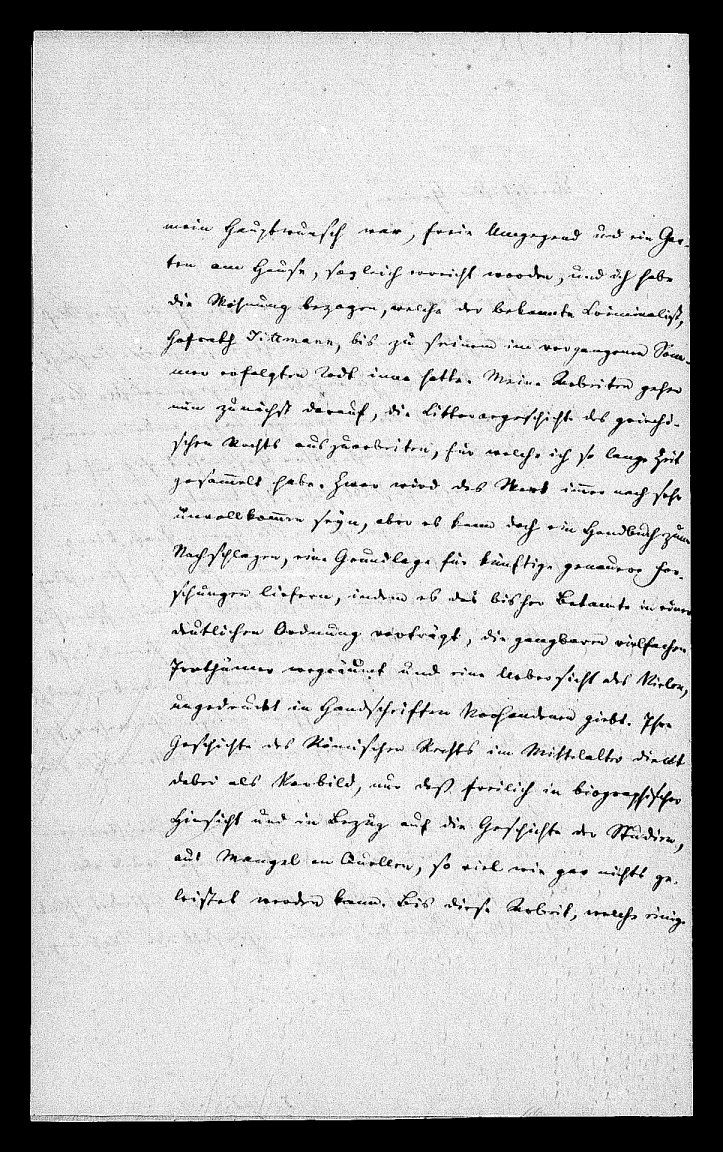 mein Hauptwunsch war, freie Umgegend und ein Gar-
ten am Hause, sogleich erreicht worden, und ich habe
die Wohnung bezogen, welche der bekannte Criminalist,
Hofrath Tittmann, bis zu seinem im vergangenen Som-
mer erfolgten Tode inne hatte. Meine Arbeiten gehen
nun zunächst darauf, die Litterargeschichte des griechi-
schen Rechts auszuarbeiten, für welche ich so lange Zeit
gesammelt habe. Zwar wird das Werk immer noch sehr
unvollkommen seyn, aber es kann doch ein Handbuch zum
Nachschlagen, eine Grundlage für künftige genauere For-
schungen liefern, indem es das bisher Bekannte in einer
deutlichen Ordnung vorträgt, die gangbaren vielfachen
Irrthümer wegräumt und eine Uebersicht des Vielen,
ungedruckt in Handschriften Vorhandenen giebt. Ihre
Geschichte des Römischen Rechts im Mittelalter dient
dabei als Vorbild, nur daß freilich in biographischer
Hinsicht und in Bezug auf die Geschichte der Studien,
aus Mangel an Quellen, so viel wie gar nichts ge-
leistet werden kann. Bis diese Arbeit, welche einige